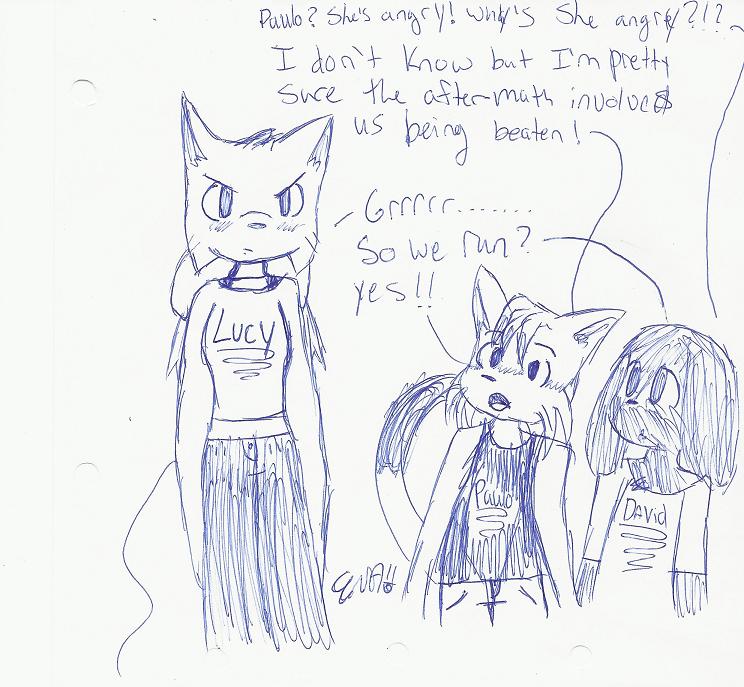 Paulo? She's angry! Why's She angry?!?
I don't know but I'm pretty
sure the after-math involves
us being beaten!
Grrrrr.......
So we run?
yes!!
Lucy
Paulo
David